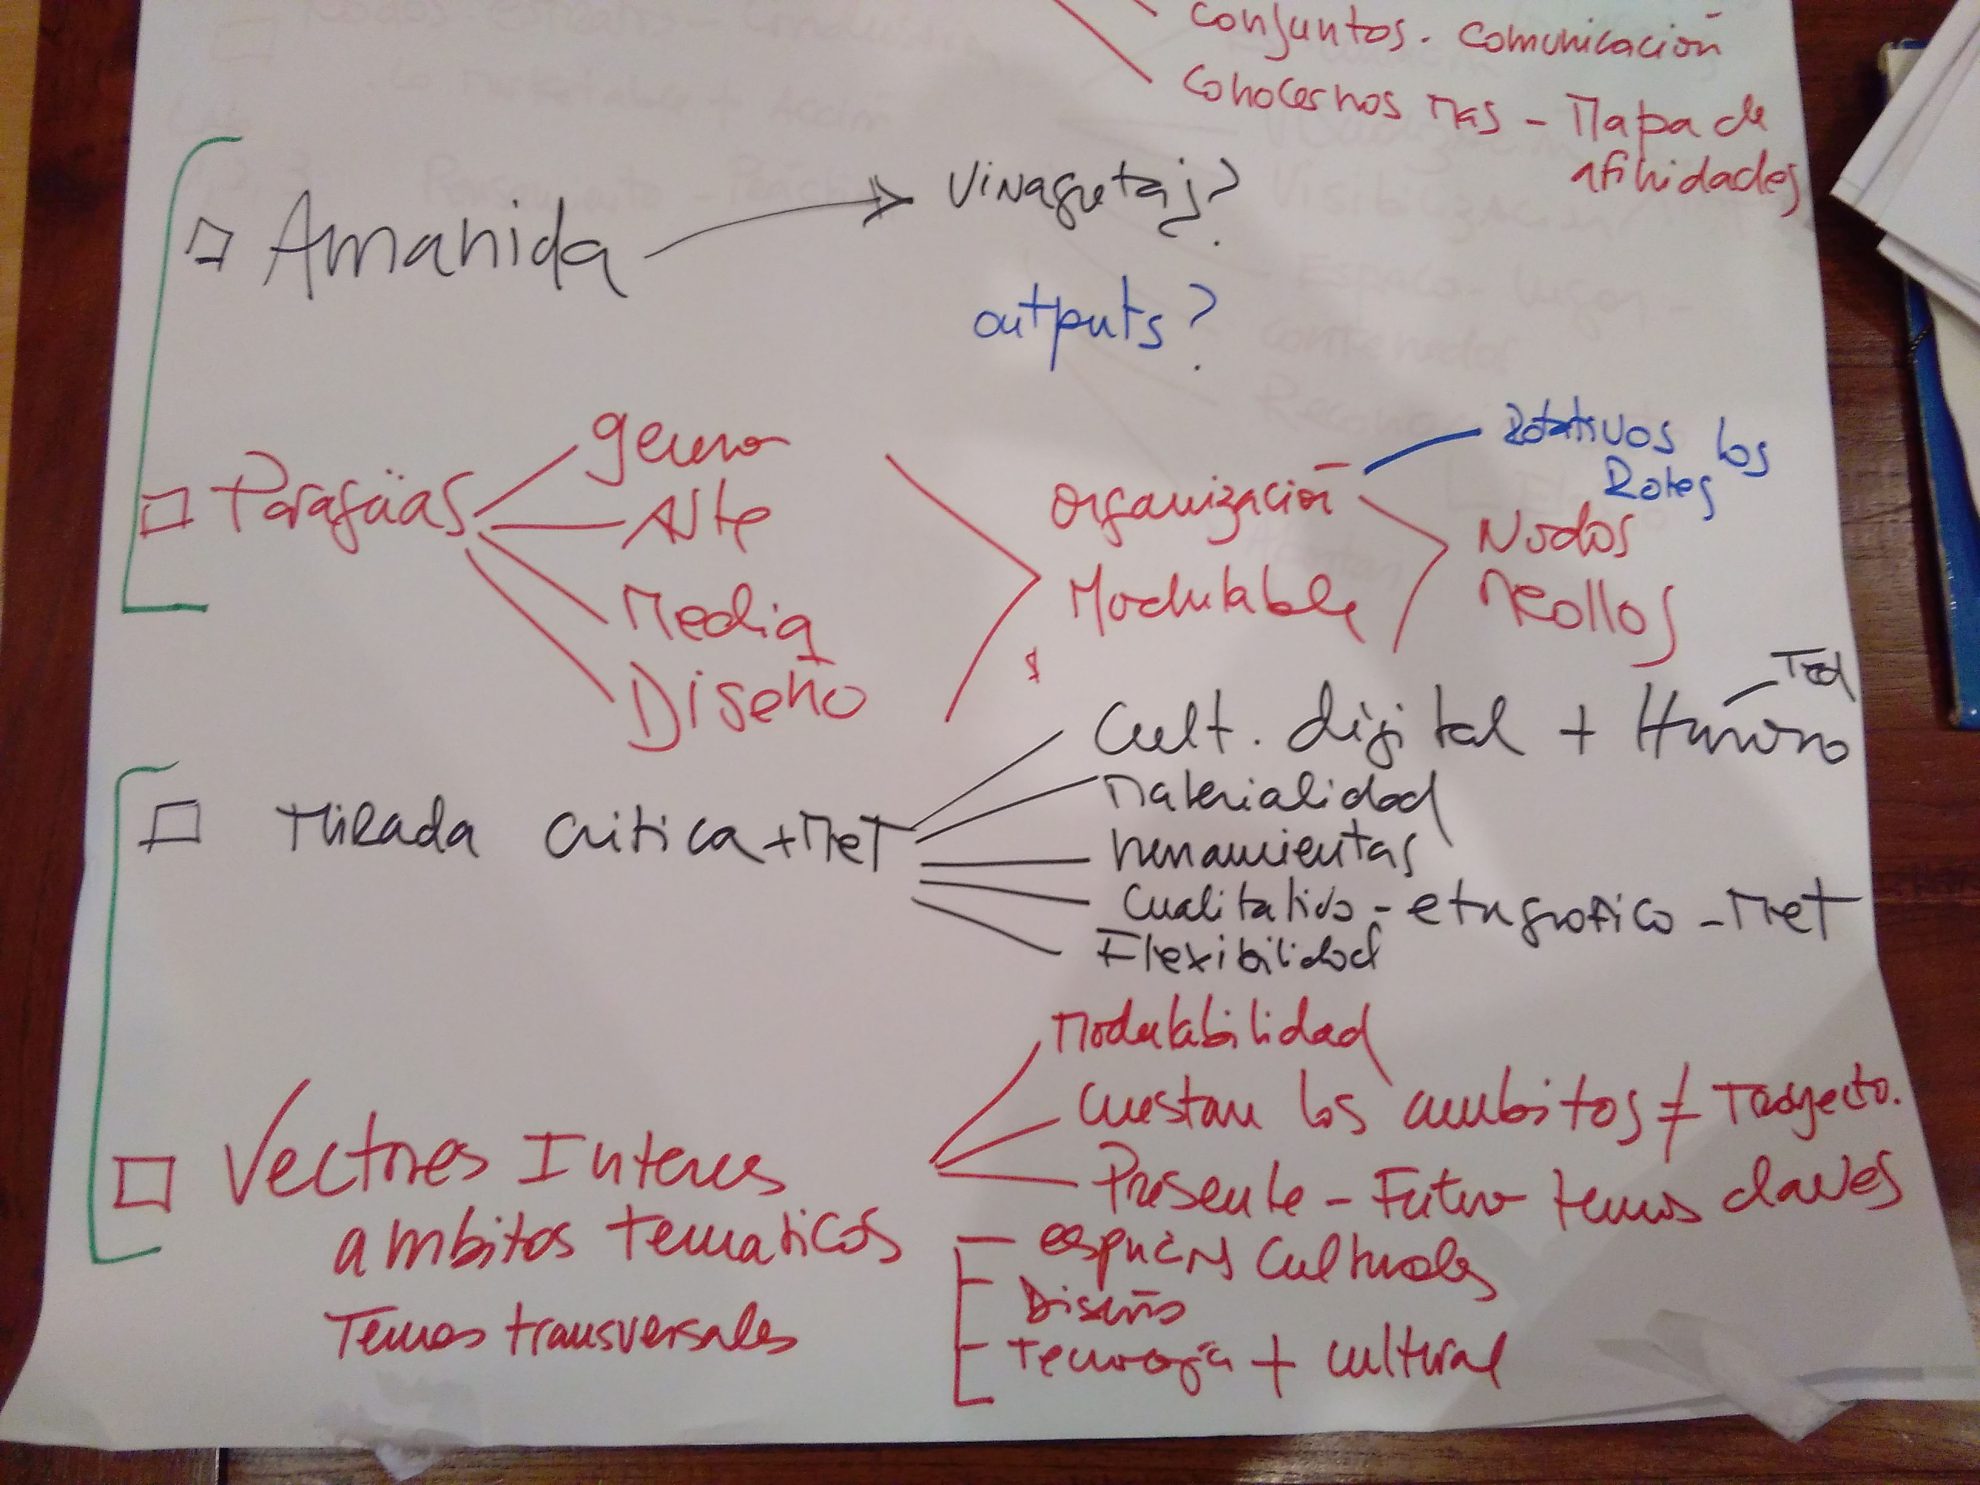 conjuntos. comunicación
conocernos mas - Mapa de
afinidades
Amanida
Vinagretas?
outputs?
Paraguas
genero
Arte
Media
Diseño
organización
Modulable
Rotativos los
Roles
Nodos
Rollos
Mirada critica + Met
Cult. digital + Humano
Materialidad
herramientas
Cualitativo - etnografico - Met
Flexibilidad
Vectores Interes
ambitos tematicos
Temas transversales
Modulabilidad
Cuestan los ambitos ≠ Trayecto.
Presente - Futuro temas claves
espacios culturales
Diseño
Tecnología + cultural